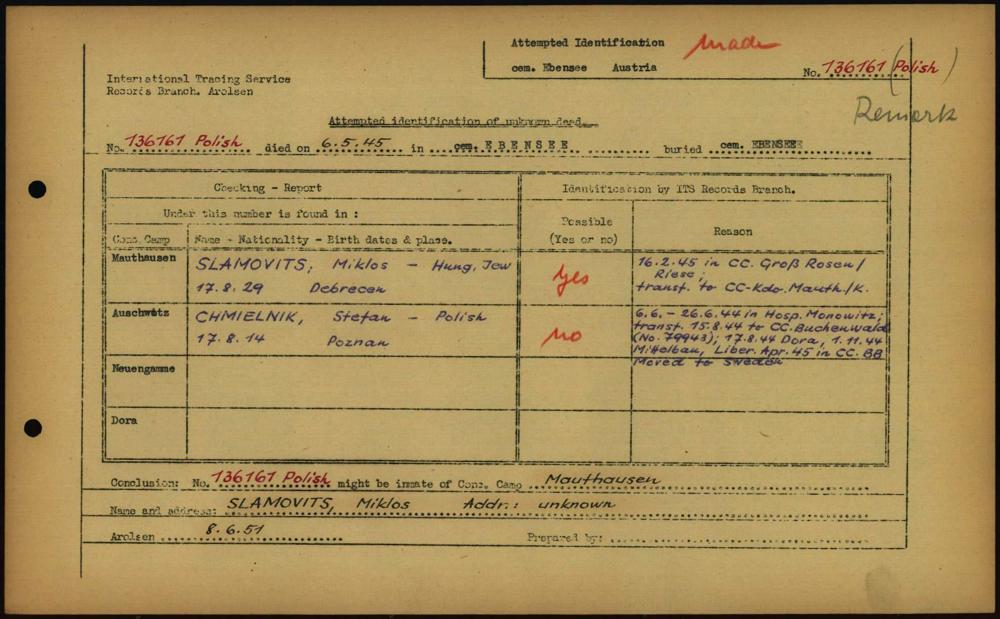 Attempted Identification made
cem. Ebensee Austria
No. 136161 (Polish)
International Tracing Service
Records Branch. Arolsen
Remark
Attempted identification of unknown dead
No. 136161 Polish died on 6.5.45 in cem. EBENSEE buried cem. EBENSEE
Checking - Report
Identification by ITS Records Branch.
Under this number is found in :
Possible
(Yes or no)
Reason
Conc. Camp
Name - Nationality - Birth dates & place.
Mauthausen
SLAMOVITS, Miklos - Hung. Jew
17.8.29 Debrecen
Yes
16.2.45 in CC. Groß Rosen/
Riese;
transf. to CC-Kdo. Mauth./K.
Auschwitz
CHMIELNIK, Stefan - Polish
17.8.14 Poznan
no
6.6. - 26.6.44 in Hosp. Monowitz;
transf. 15.8.44 to CC. Buchenwald
(No. 79943); 17.8.44 Dora, 1.11.44
Mittelbau, Liber. Apr. 45 in CC. BB
Moved to Sweden
Neuengamme
Dora
Conclusion: No. 136161 Polish might be inmate of Conc. Camp Mauthausen
Name and address: SLAMOVITS, Miklos Addr.: unknown
Arolsen 8.6.51 Prepared by: